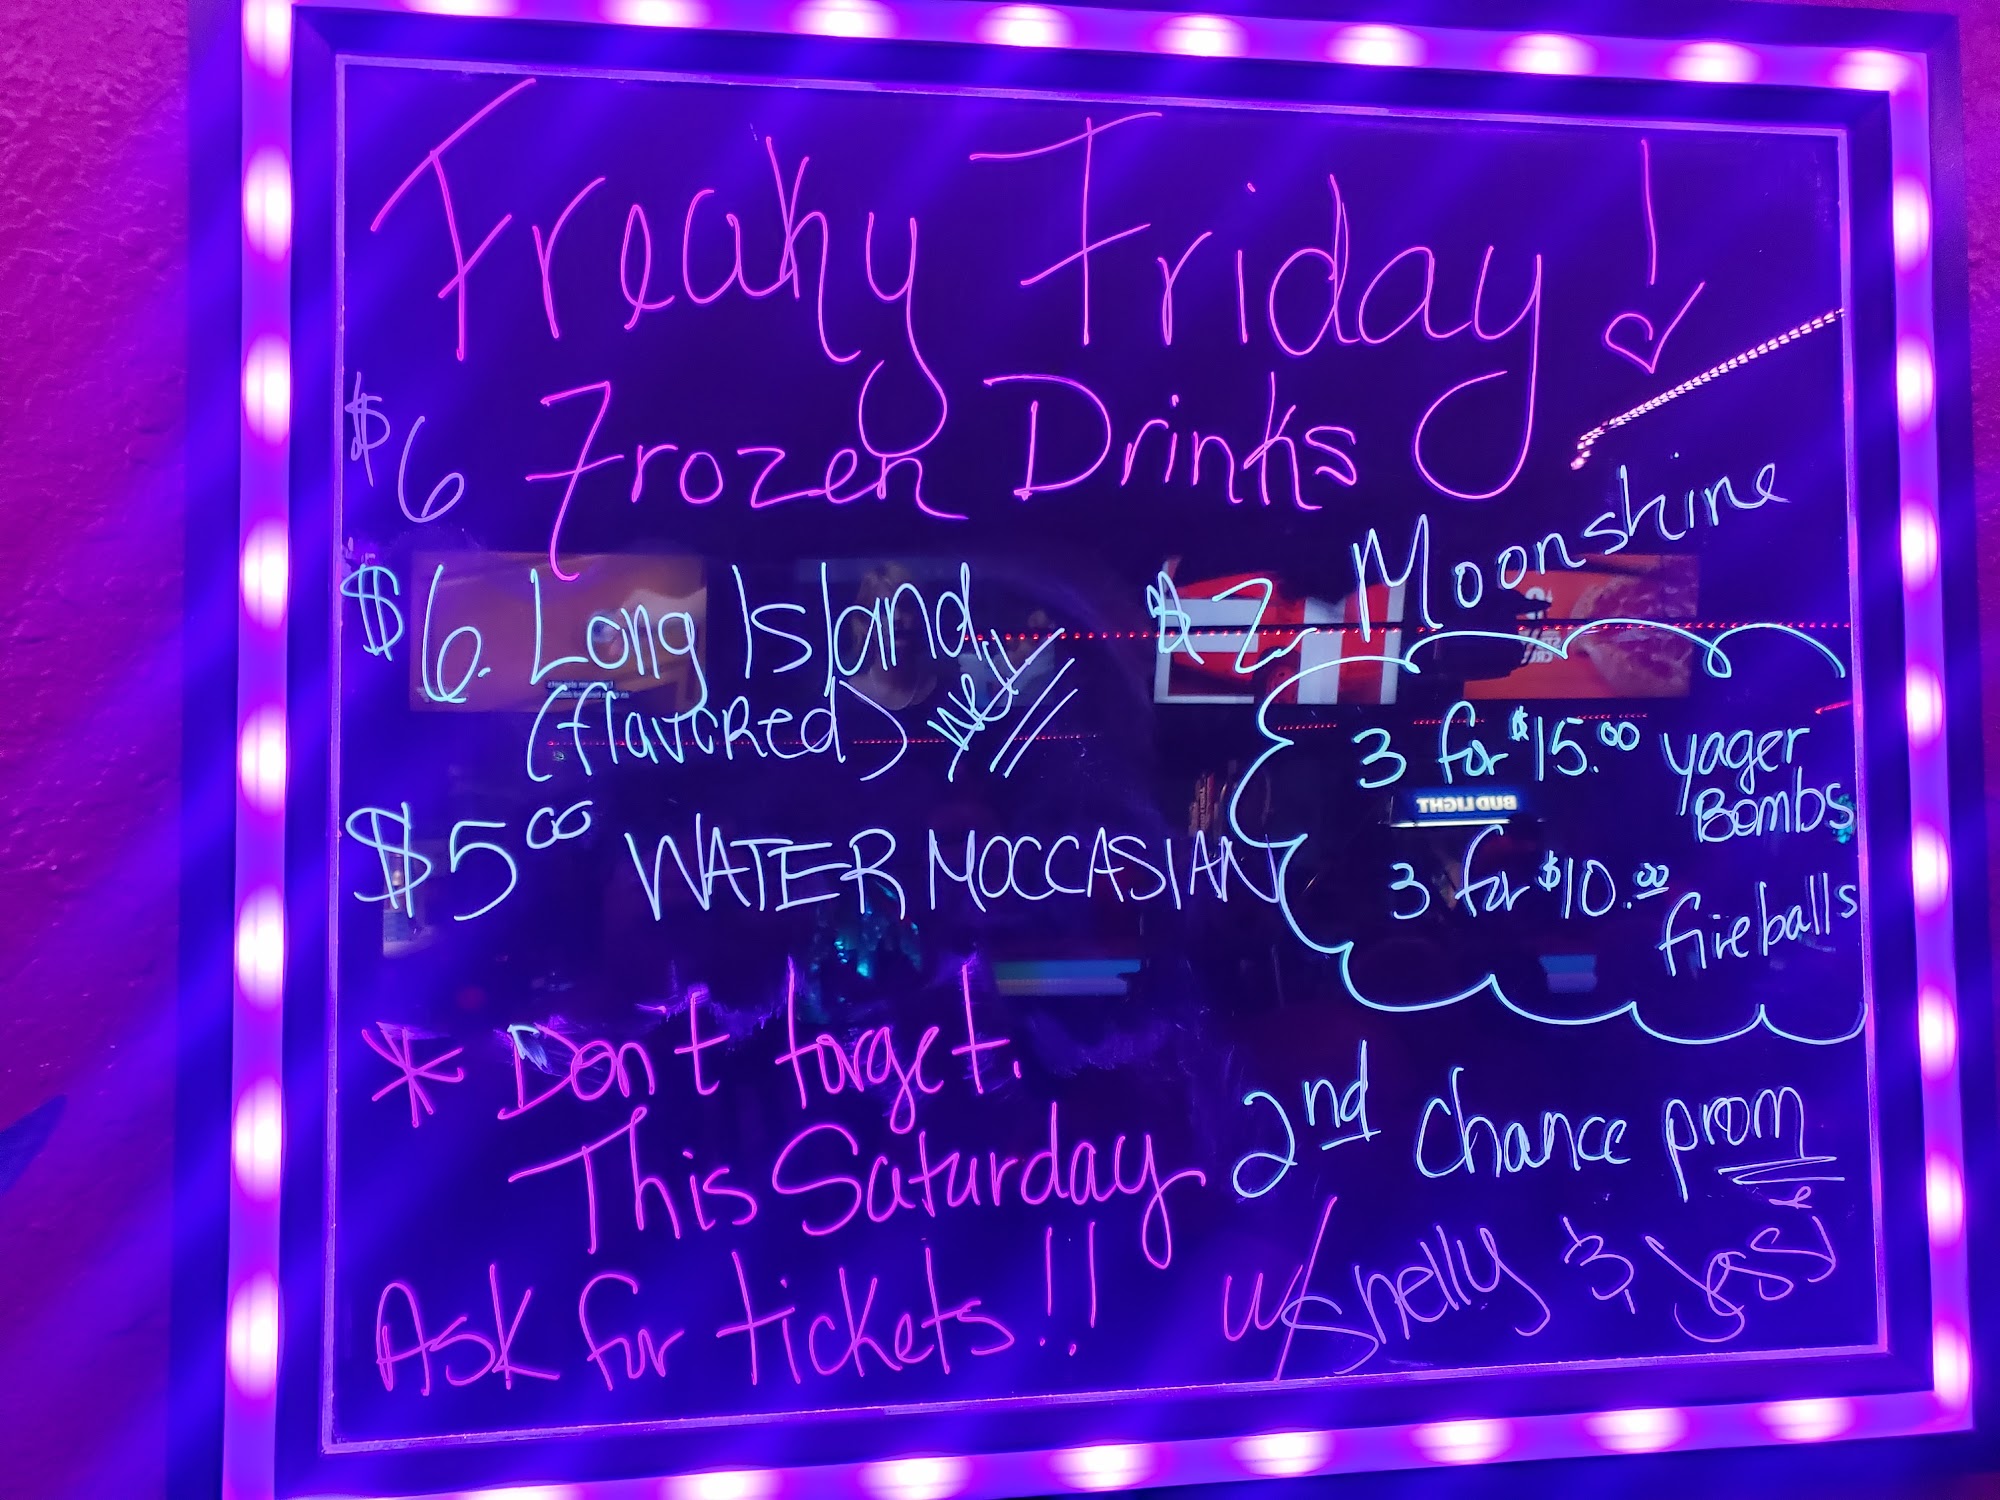 Freaky Friday!
$6 Frozen Drinks
$6. Long Island
(flavored) New
$2 Moonshine
3 for $15.00 yager
Bombs
3 for $10.00
fireballs
$5.00 WATER MOCCASIAN
BUD LIGHT
* Don't forget.
This Saturday 2nd Chance prom
Ask for tickets!! w/ Shelly & Jessi